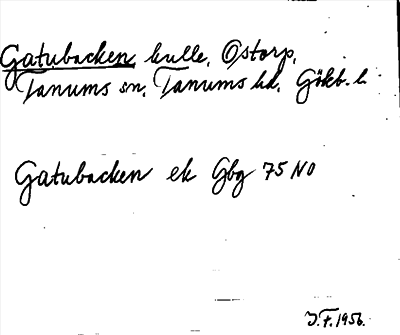 Gatubacken, kulle, Ostorp,
Tanums sn, Tanums hd, Gökb. l.
Gatubacken ek Gbg 75 NO
J.F. 1956.